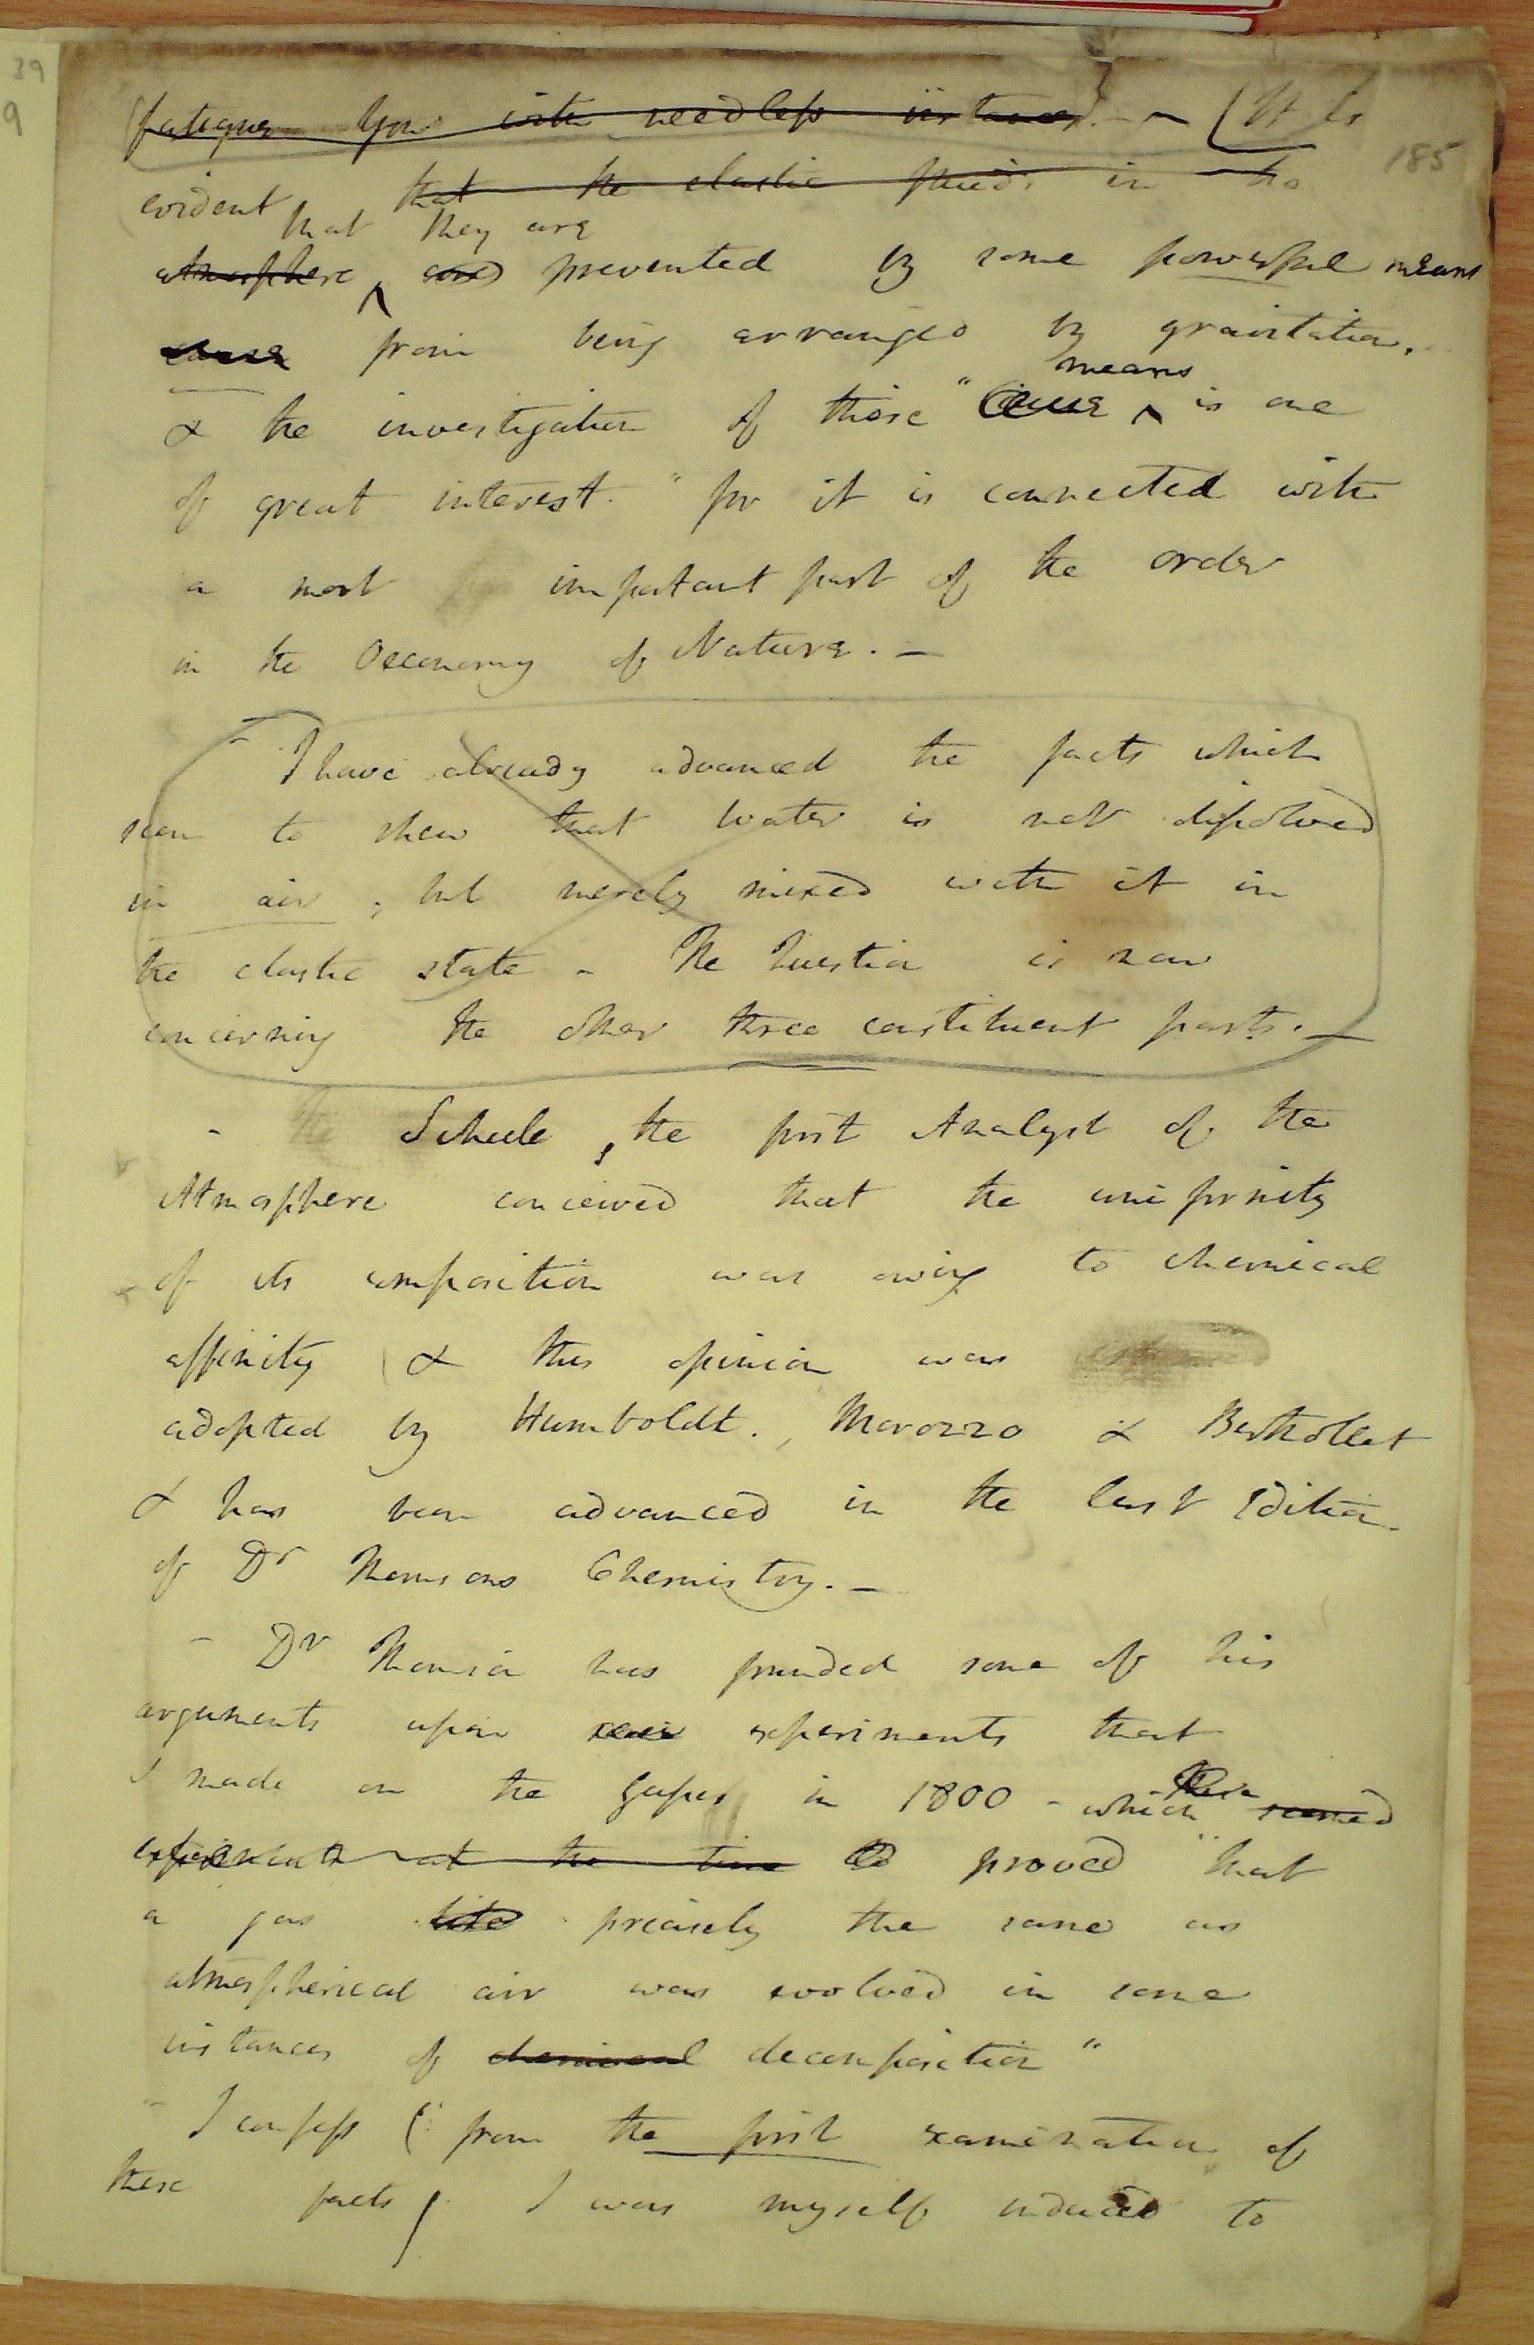 39
9
185
fatigue you with needless instances. - (It is
evident that the elastic fluids in the
that they are
atmosphere and prevented by some powerful means
cause from being arranged by gravitation,
means
& the investigation of those "cause ^ is one
of great interest. " for it is connected with
a most important part of the order
in the Oeconomy of Nature. -
I have already advanced the facts which
seem to shew that Water is not dissolved
in air; but merely mixed with it in
the elastic state - The Question is now
concerning the other three constituent parts. -
- The Scheele, the first Analyst of the
Atmosphere conceived that the uniformity
of its composition was owing to chemical
affinity & this opinion was
adopted by Humboldt., Morozzo & Berthollet
& has been advanced in the last Edition
of Dr Thomsons Chemistry. -
- Dr Thomson has founded some of his
arguments upon some experiments that
I made on the Gases in 1800 - which seemed
experiments at the time to proved "that
a gas like precisely the same as
atmospherical air was evolved in some
instances of chemical decomposition"
- I confess (from the first examination of
these facts) I was myself induced to